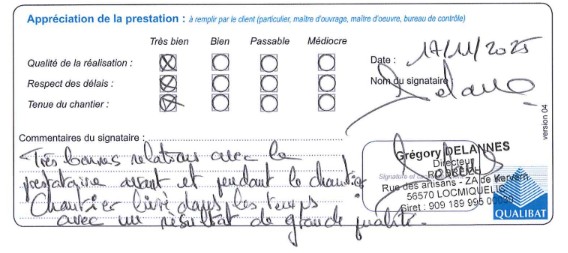 Appréciation de la prestation : à remplir par le client (particulier, maître d'ouvrage, maître d'oeuvre, bureau de contrôle)
Très bien Bien Passable Médiocre
Qualité de la réalisation :
Respect des délais :
Tenue du chantier :
Date : 17/11/2025
Nom du signataire :
Commentaires du signataire :
Très bonnes relations avec le
prestataire avant et pendant le chantier
Chantier livré dans les temps
avec un résultat de grande qualité.
Grégory DELANNES
Directeur
Signature et
Rue des artisans - ZA de Kerven
56570 LOCMIQUELIC
Siret : 909 189 995
QUALIBAT
version 04